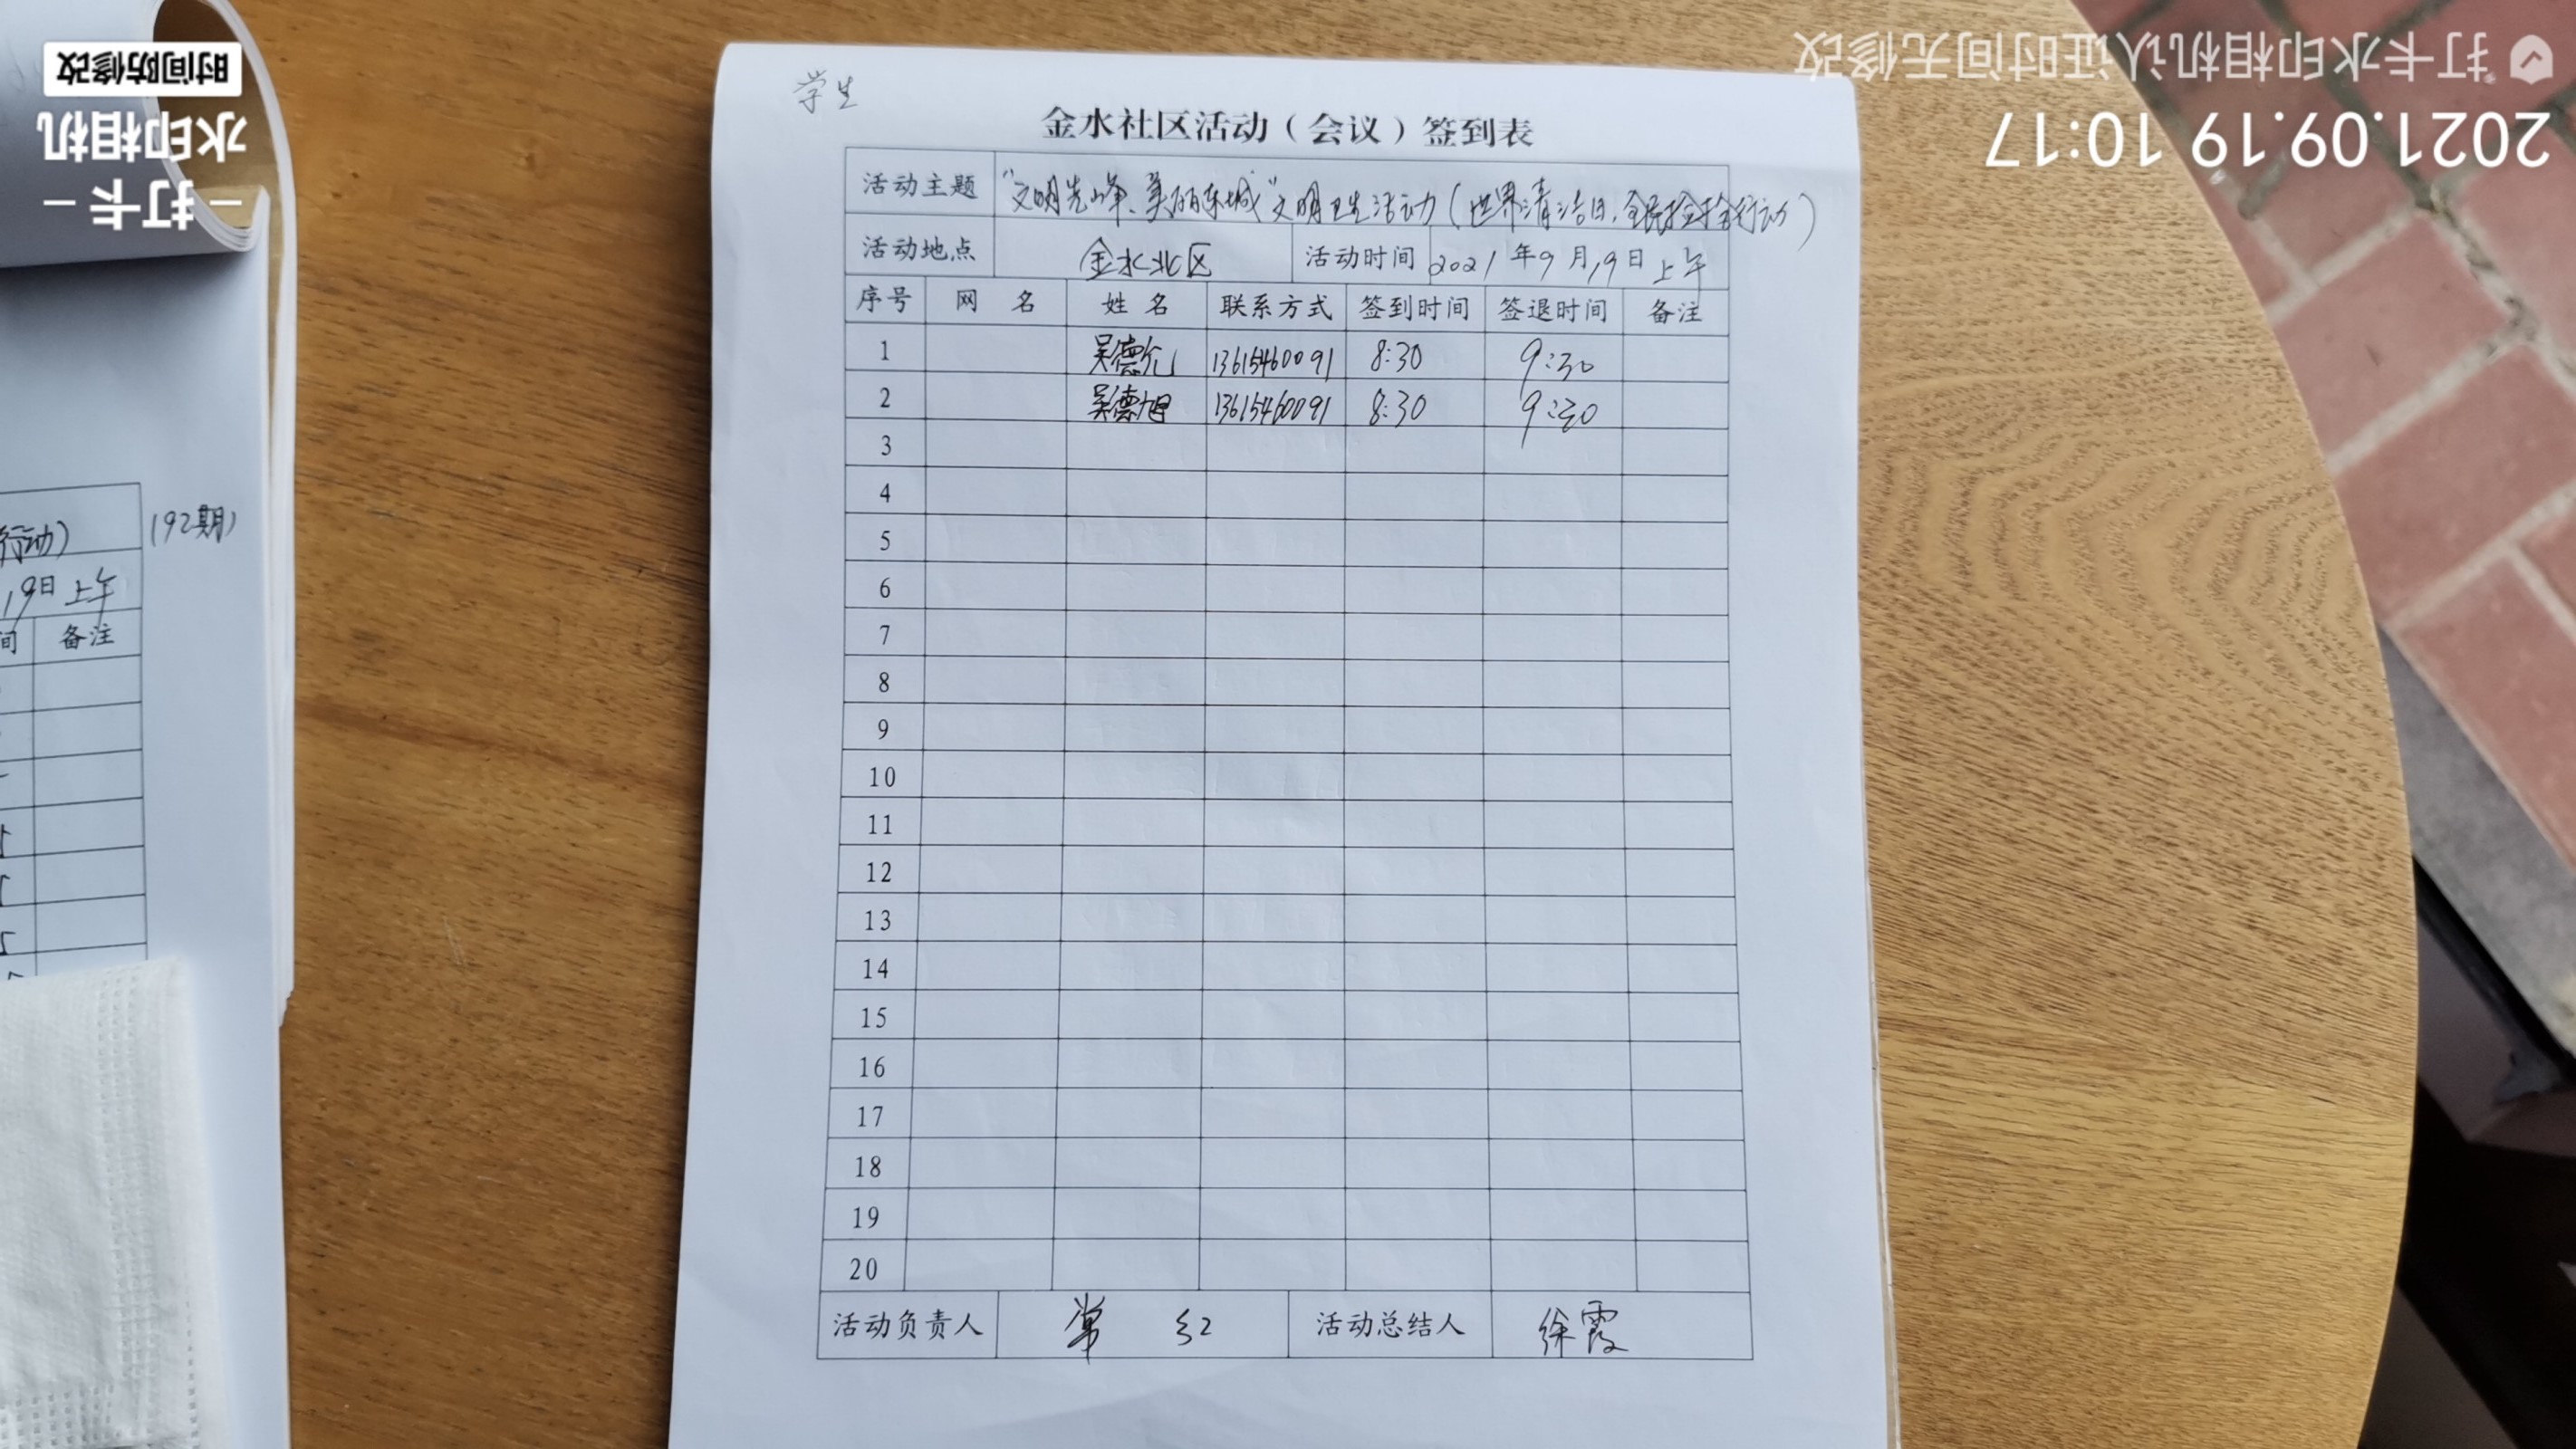 学生
金水社区活动（会议）签到表
活动主题 "文明先峰、美丽东城"文明卫生活动（世界清洁日，全民捡拾行动）
活动地点 金水北区 活动时间 2021年9月19日上午
序号 网名 姓名 联系方式 签到时间 签退时间 备注
1 吴德允 13615460091 8:30 9:30
2 吴德旭 13615460091 8:30 9:30
3
4
5
6
7
8
9
10
11
12
13
14
15
16
17
18
19
20
活动负责人 常红 活动总结人 徐霞
行动） （92期）
19日上午
间 备注
打卡水印相机认证时间无修改
2021.09.19 10:17
打卡
水印相机
时间防修改